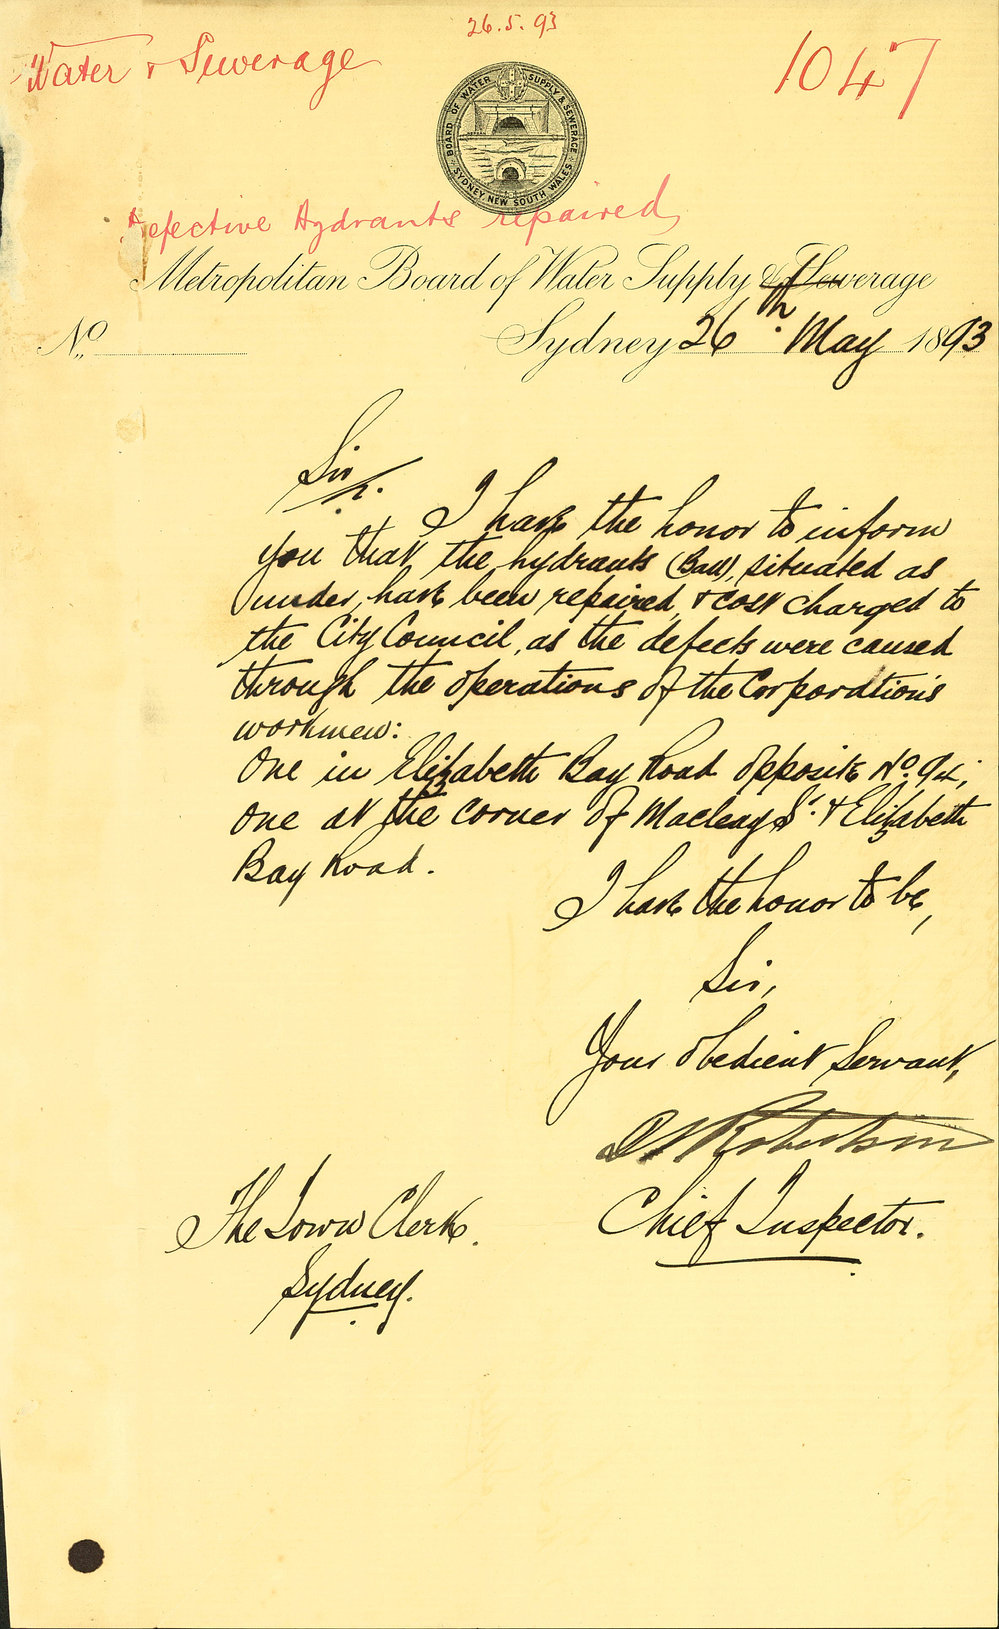 26.5.93
Water & Sewerage
1047
BOARD OF WATER SUPPLY & SEWERAGE
SYDNEY, NEW SOUTH WALES
Defective Hydrants repaired
Metropolitan Board of Water Supply & Sewerage
No.
Sydney 26th May 1893
Sir,
I have the honor to inform
you that the hydrants (Ball), situated as
under, have been repaired, & cost charged to
the City Council, as the defects were caused
through the operations of the Corporation's
workmen:
One in Elizabeth Bay Road opposite No. 94;
One at the corner of Macleay St. & Elizabeth
Bay Road.
I have the honor to be,
Sir,
Your obedient Servant,
Robertson
Chief Inspector.
The Town Clerk.
Sydney.